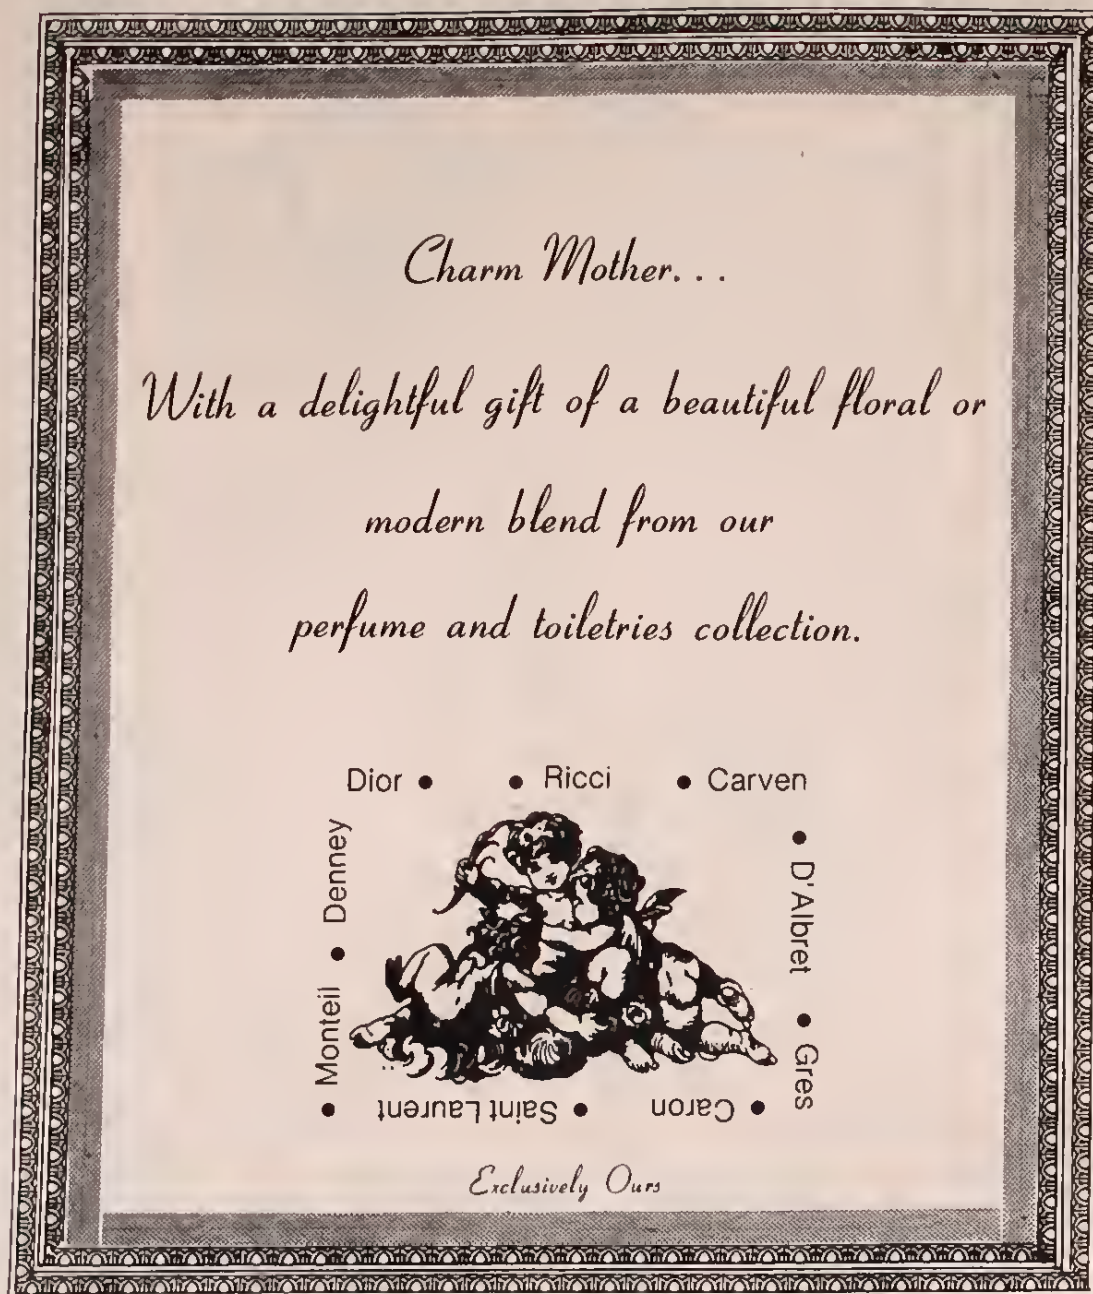 Charm Mother. . .
With a delightful gift of a beautiful floral or
modern blend from our
perfume and toiletries collection.
Dior • • Ricci • Carven
• D'Albret • Gres
• Caron • Saint Laurent
• Monteil • Denney
Exclusively Ours